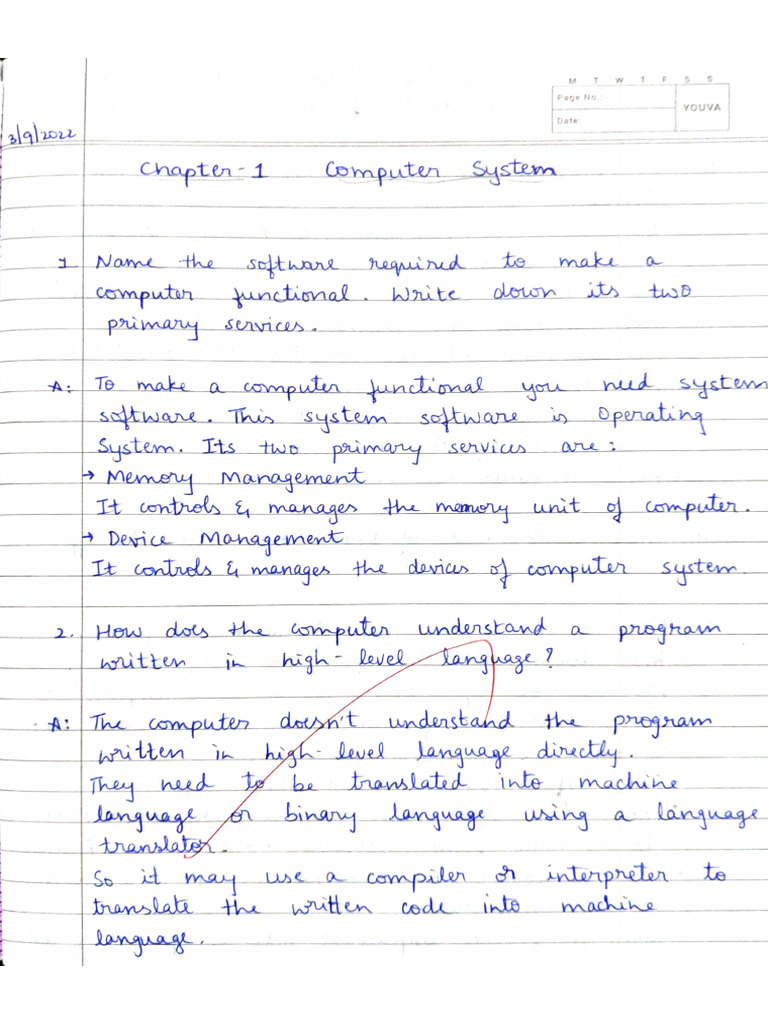 M T W T F S S
Page No.:
YOUVA
Date:
3/9/2022
Chapter-1 Computer System
1 Name the software required to make a
computer functional. Write down its two
primary services.
A: To make a computer functional you need system
software. This system software is Operating
System. Its two primary services are:
→ Memory Management
It controls & manages the memory unit of computer.
→ Device Management
It controls & manages the devices of computer system.
2. How does the computer understand a program
written in high-level language?
A: The computer doesn't understand the program
written in high-level language directly.
They need to be translated into machine
language or binary language using a language
translator.
So it may use a compiler or interpreter to
translate the written code into machine
language.